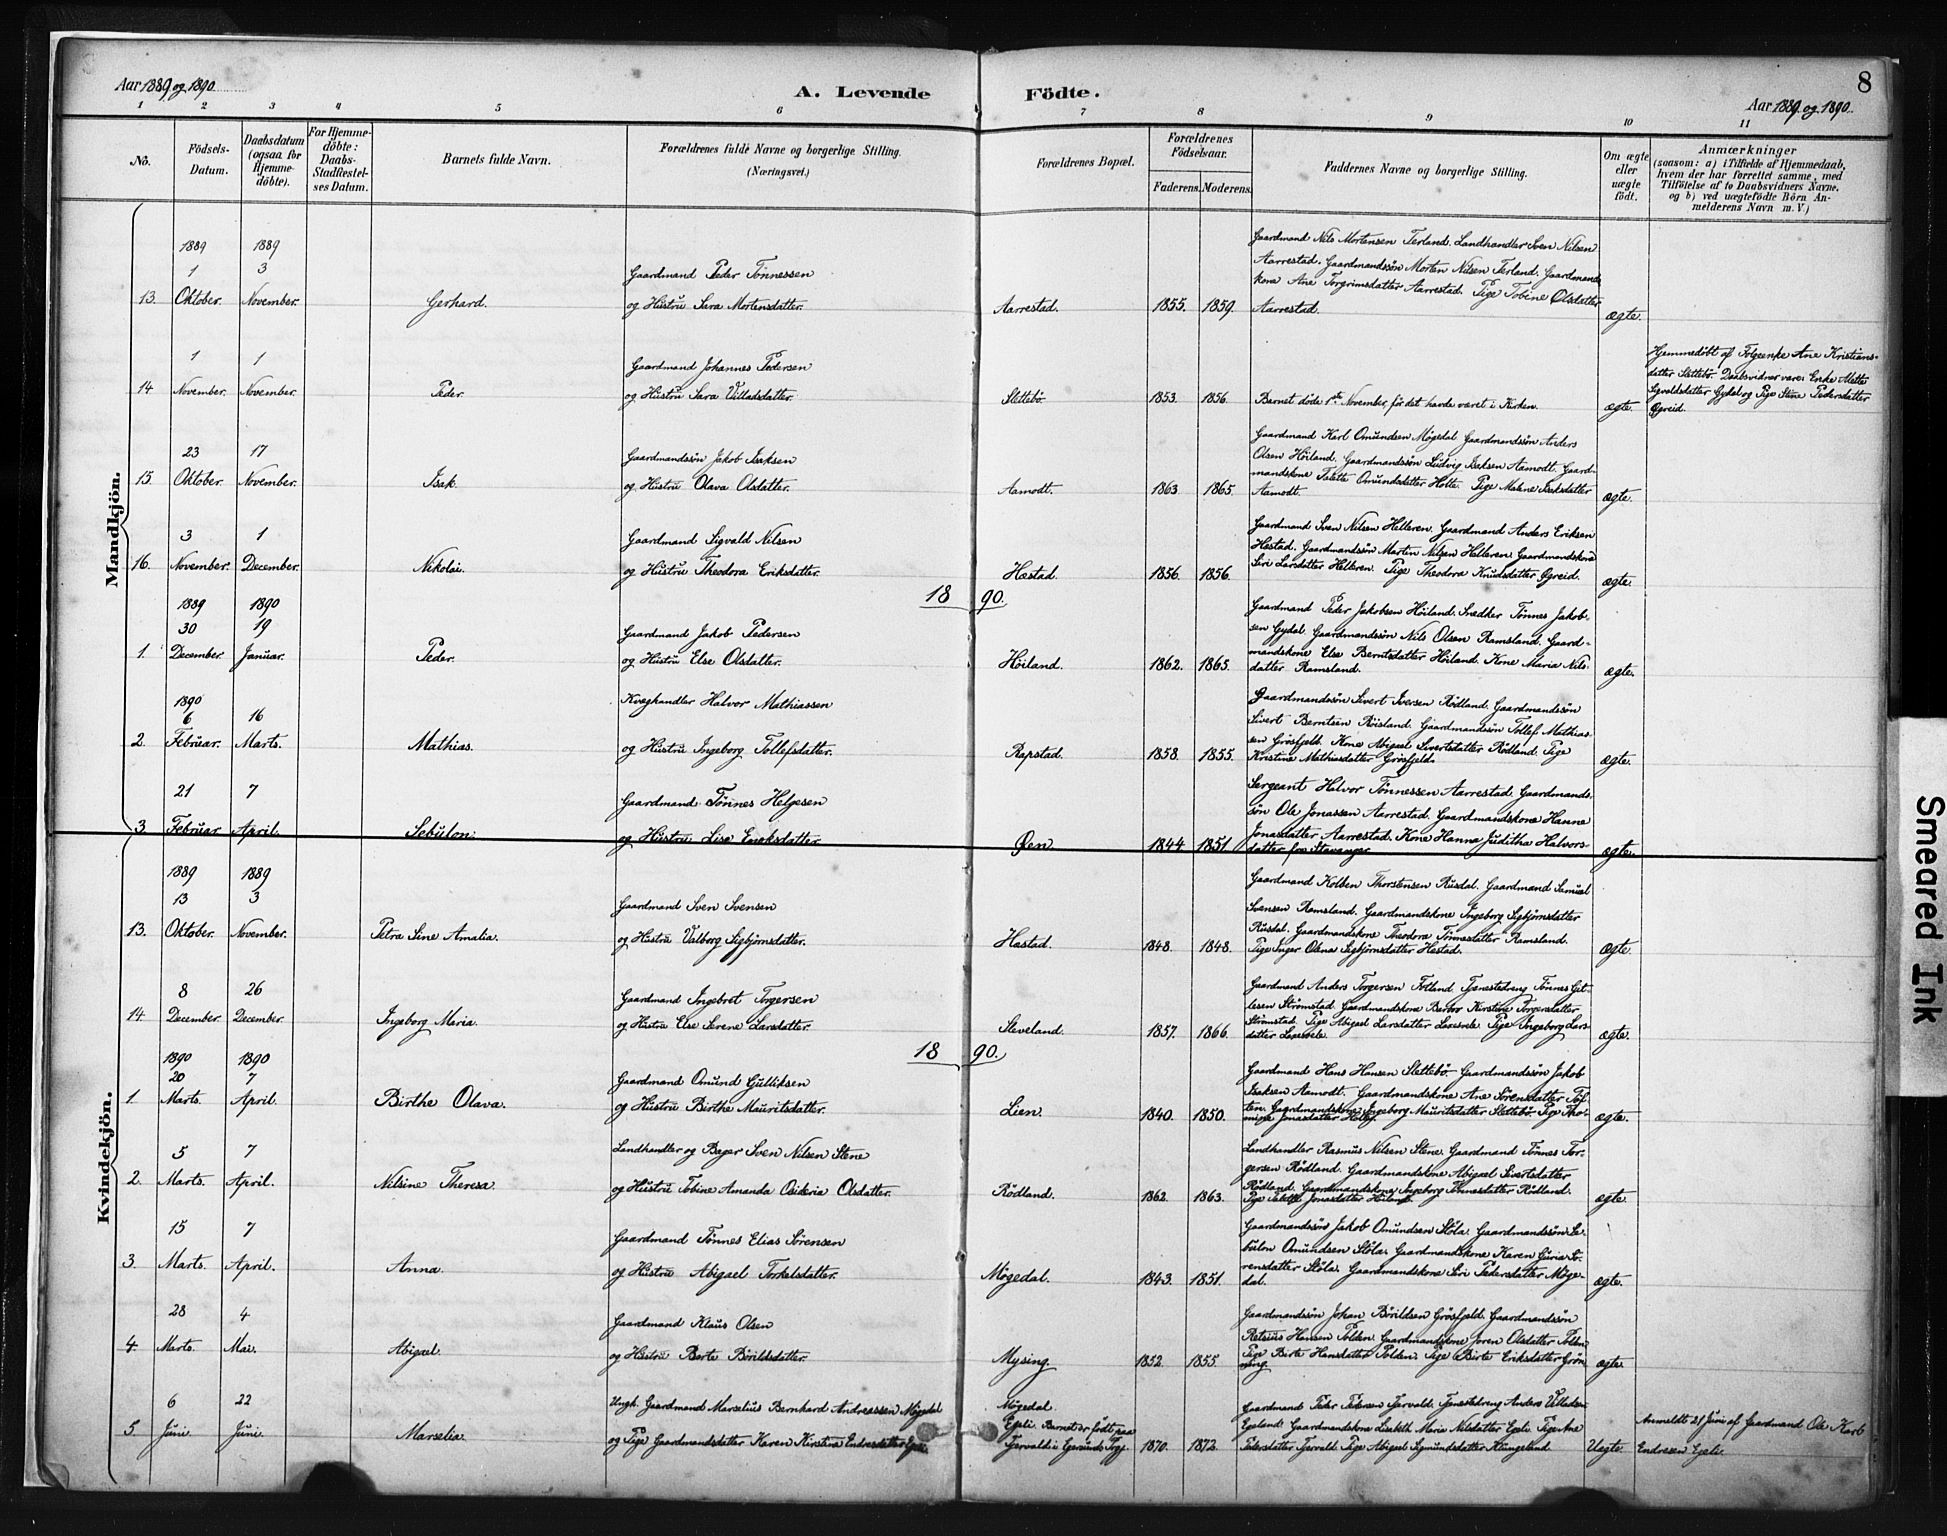 Aar 1889 og 1890.
A. Levende Födte.
8
Aar 1889 og 1890.
1 2 3 4 5 6 7 8 9 10 11
No.
Födsels-Datum.
Daabsdatum (ogsaa for Hjemme-döbte).
For Hjemme-döbte: Daabs-Stadfæstel-ses Datum.
Barnets fulde Navn.
Forældrenes fulde Navne og borgerlige Stilling. (Næringsvei.)
Forældrenes Bopæl.
Forældrenes Födselsaar.
Faderens. Moderens.
Faddernes Navne og borgerlige Stilling.
Om ægte eller uægte födt.
Anmærkninger
(saasom: a) i Tilfælde af Hjemmedaab, hvem der har forrettet samme, med Tilföielse af to Daabsvidners Navne, og b) ved uægtefödte Börn An-melderens Navn m. V.)
Mandkjön.
1889 1889
1 3
13. Oktober. November. Gerhard.
Gaardmand Peder Tønnessen
og Hustru Sara Mortensdatter.
Aarrestad. 1855. 1859.
Gaardmand Nils Mortensen Terland. Landhandler Sven Nilsen
Aarrestad. Gaardmandssøn Morten Nilsen Terland. Gaardmands-
kone Ane Torgrimsdatter Aarrestad. Pige Tobine Olsdatter
Aarrestad.
ægte.
1 1
14 November. November. Peder.
Gaardmand Johannes Pedersen
og Hustru Sara Villadsdatter.
Slettebø. 1853. 1856.
Barnet døde 1ste November, før det havde været i Kirken.
ægte.
Hjemmedøbt af Folgeenke Ane Kristians-
datter Slettebø. Daabsvidner vare: Enke Mette
Sigvaldsdatter Gydal og Pige Stine Pedersdatter
Øgreid.
23 17
15. Oktober. November. Isak.
Gaardmandssøn Jakob Isaksen
og Hustru Olava Olsdatter.
Aamodt. 1863. 1865.
Gaardmand Karl Omundsen Møgedal. Gaardmandssøn Anders
Olsen Höiland. Gaardmandssøn Ludvig Isaksen Aamodt. Gaard-
mandskone Talette Omundsdatter Holte. Pige Malene Isaksdatter
Aamodt.
ægte.
3 1
16. November. December. Nikolai.
Gaardmand Sigvald Nilsen
og Hustru Theodora Eriksdatter.
Hæstad. 1856. 1856.
Gaardmand Sven Nilsen Helleren. Gaardmand Anders Eriksen
Hæstad. Gaardmandssøn Martin Nilsen Helleren. Gaardmandskone
Siri Larsdatter Helleren. Pige Theodora Knudsdatter Øgreid.
ægte.
1890.
1889 1890
30 19
1. December. Januar. Peder.
Gaardmand Jakob Pedersen
og Hustru Else Olsdatter.
Höiland. 1862. 1865.
Gaardmand Peder Jakobsen Höiland. Snedker Tønnes Jakob-
sen Gydal. Gaardmandssøn Nils Olsen Ramsland. Gaard-
mandskone Else Berntsdatter Höiland. Kone Maria Nils-
datter Ramsland.
ægte.
1890
6 16
2. Februar. Marts. Mathias.
Kvæghandler Halvor Mathiassen
og Hustru Ingeborg Tollefsdatter.
Rapstad. 1858. 1855.
Gaardmandssøn Sivert Iversen Rødland. Gaardmandssøn
Sivert Berntsen Röisland. Gaardmandssøn Tollef Mathias-
sen Grøsfjeld. Kone Abigael Sivertsdatter Rødland. Pige
Kristine Mathiasdatter Grøsfjeld.
ægte.
21 7
3. Februar. April. Sebulon.
Gaardmand Tønnes Helgesen
og Hustru Lise Eneksdatter.
Øen. 1844. 1851.
Sergeant Halvor Tønnessen Aarrestad. Gaardmands-
søn Ole Jonassen Aarrestad. Gaardmandskone Hanne
Jonasdatter Aarrestad. Kone Hanna Juditha Halvors-
datter fra Stavanger.
ægte.
Kvindekjön.
1889 1889
13 3
13. Oktober. November. Petra Sine Amalia.
Gaardmand Sven Svensen
og Hustru Valborg Sigbjørnsdatter.
Hæstad. 1848. 1848.
Gaardmand Kolben Thorstensen Rusdal. Gaardmand Samuel
Svensen Ramsland. Gaardmandskone Ingeborg Sigbjørnsdatter
Rusdal. Gaardmandskone Theodora Tønnesdatter Ramsland.
Pige Inger Olena Sigbjørnsdatter Hæstad.
ægte.
8 26
14. December. December. Ingeborg Maria.
Gaardmand Ingebret Torgersen
og Hustru Else Serene Larsdatter.
Sleveland. 1857. 1866.
Gaardmand Anders Torgersen Fotland. Tjenestedreng Tønnes Git-
lesen Strømstad. Gaardmandskone Berbor Kirstine Torgersdatter
Strømstad. Pige Abigael Larsdatter Laxesvele. Pige Ingeborg Lars-
datter Laxesvele.
ægte.
1890.
1890 1890
20 7
1. Marts. April. Birthe Olava.
Gaardmand Omund Gulliksen
og Hustru Birthe Mauritsdatter.
Lien. 1840. 1850.
Gaardmand Hans Hansen Slettebø. Gaardmandssøn Jakob
Isaksen Aamodt. Gaardmandskone Ane Sørensdatter Tof-
ten. Gaardmandskone Ingeborg Mauritsdatter Slettebø. Pige Tho-
mine Jonasdatter
ægte.
5 7
2. Marts. April. Nilsine Theresa.
Landhandler og Bager Sven Nilsen Stene
og Hustru Tobine Amanda Osideria Olsdatter.
Rødland. 1862. 1863.
Landhandler Rasmus Nilsen Stene. Gaardmand Tønnes Tor-
gersen Rødland. Gaardmandskone Abigael Sivertsdatter
Rødland. Gaardmandskone Ingeborg Tønnesdatter Rødland.
Pige Talette Jonasdatter Höiland.
ægte.
15 7
3. Marts. April. Anna.
Gaardmand Tønnes Elias Sørensen
og Hustru Abigael Torkelsdatter.
Møgedal. 1843. 1851.
Gaardmandssøn Jakob Omundsen Støla. Gaardmandssøn Se-
bulon Omundsen Støla. Gaardmandskone Karen Guria Sø-
rensdatter Støla. Gaardmandskone Siri Pedersdatter Møge-
dal.
ægte.
28 4
4. Marts. Mai. Abigael.
Gaardmand Klaus Olsen
og Hustru Berte Börildsdatter.
Mysing. 1852. 1855.
Gaardmandssøn Johan Börildsen Grøsfjeld. Gaardmandssøn
Retsius Hansen Polden. Gaardmandskone Joren Olsdatter Polden.
Pige Birte Hansdatter Polden. Pige Birte Eriksdatter Grøn-
ning.
ægte.
6 22
5. Juni. Juni. Marselia.
Ungk. Gaardmand Marselius Bernhard Andreassen Møgedal
og Pige Gaardmandsdatter Karen Kirstina Endresdatter Egeli.
Møgedal.
Egeli. Barnet er født paa
Tjervald i Egersunds
1870. 1872.
Gaardmand Peder Pedersen Tjervald. Tjenestedreng Anders Villadsen
Egeland. Gaardmandskone Lisabeth Marie Nilsdatter Egeli. Pige Ane
Pedersdatter Tjervald. Pige Abigael Sigmundsdatter Haugeland.
Uægte.
Anmeldt 21 Juni af Gaardmand Ole Karl
Endresen Egeli.
Smeared Ink